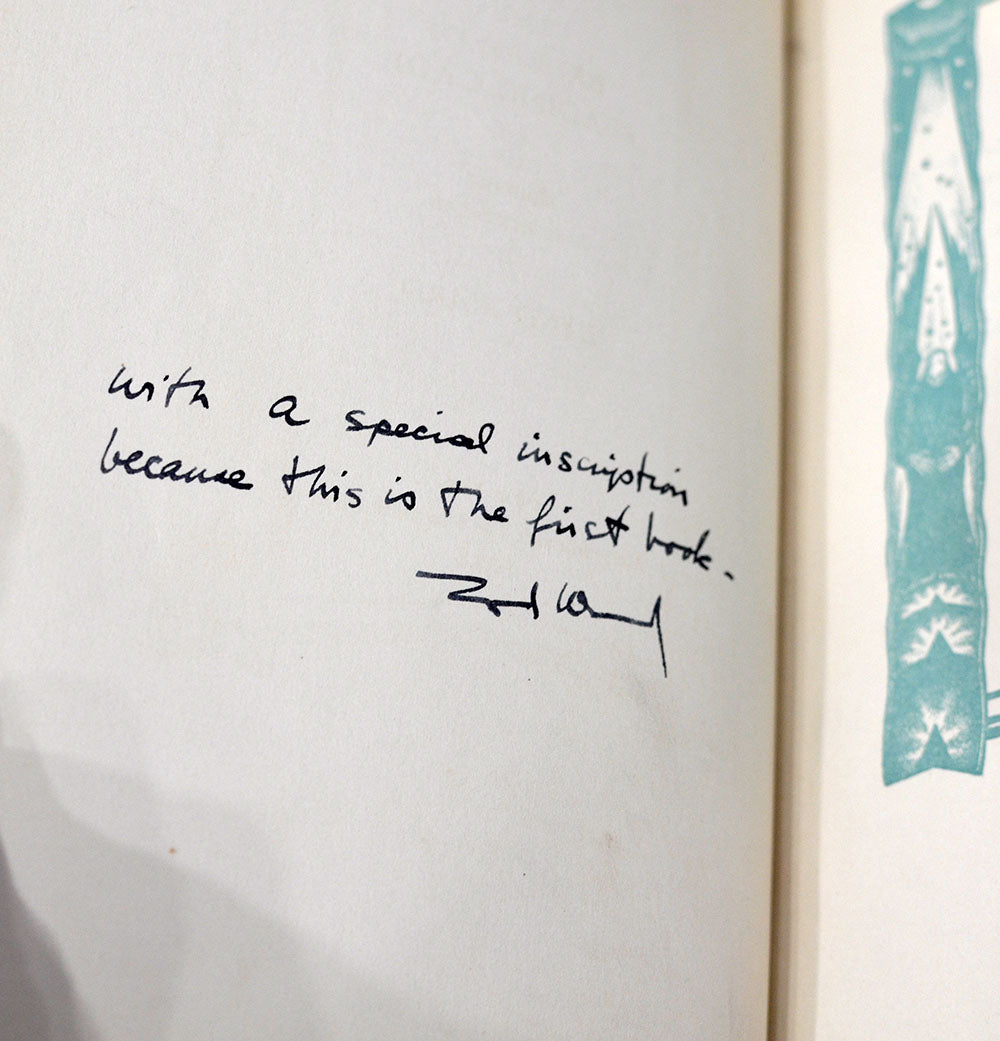 with a special inscription
because this is the first book.